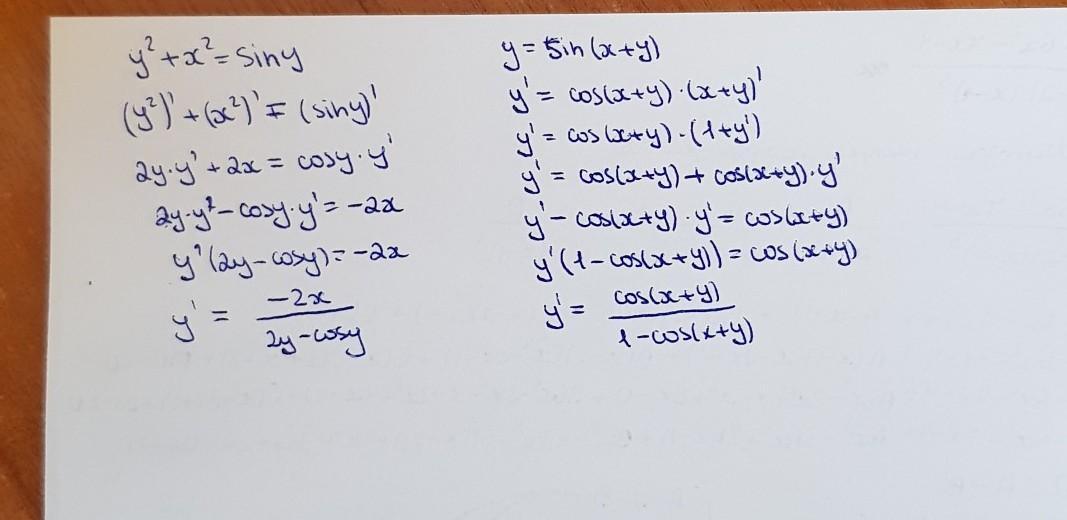 y² + x² = sin y
(y²)' + (x²)' = (sin y)'
2y·y' + 2x = cosy·y'
2y·y' - cosy·y' = -2x
y'(2y - cosy) = -2x
y' = \frac{-2x}{2y - cosy}
y = sin(x+y)
y' = cos(x+y)·(x+y)'
y' = cos(x+y)·(1+y')
y' = cos(x+y) + cos(x+y)·y'
y' - cos(x+y)·y' = cos(x+y)
y'(1 - cos(x+y)) = cos(x+y)
y' = \frac{cos(x+y)}{1 - cos(x+y)}